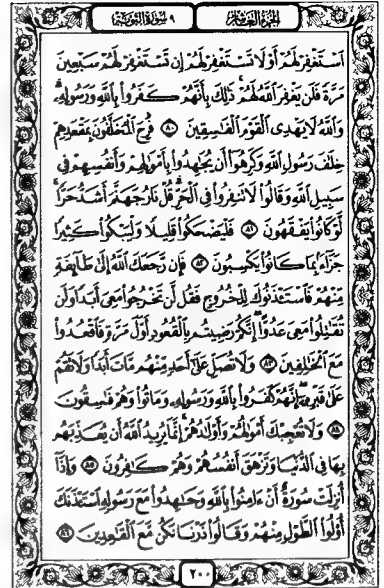 الجزء العاشر ٩ سورة التوبة
ٱسْتَغْفِرْ لَهُمْ أَوْ لَا تَسْتَغْفِرْ لَهُمْ إِن تَسْتَغْفِرْ لَهُمْ سَبْعِينَ
مَرَّةً فَلَن يَغْفِرَ ٱللَّهُ لَهُمْ ذَٰلِكَ بِأَنَّهُمْ كَفَرُوا۟ بِٱللَّهِ وَرَسُولِهِۦ
وَٱللَّهُ لَا يَهْدِى ٱلْقَوْمَ ٱلْفَٰسِقِينَ ٨٠ فَرِحَ ٱلْمُخَلَّفُونَ بِمَقْعَدِهِمْ
خِلَٰفَ رَسُولِ ٱللَّهِ وَكَرِهُوٓا۟ أَن يُجَٰهِدُوا۟ بِأَمْوَٰلِهِمْ وَأَنفُسِهِمْ فِى
سَبِيلِ ٱللَّهِ وَقَالُوا۟ لَا تَنفِرُوا۟ فِى ٱلْحَرِّ قُلْ نَارُ جَهَنَّمَ أَشَدُّ حَرًّا
لَّوْ كَانُوا۟ يَفْقَهُونَ ٨١ فَلْيَضْحَكُوا۟ قَلِيلًا وَلْيَبْكُوا۟ كَثِيرًا
جَزَآءًۢ بِمَا كَانُوا۟ يَكْسِبُونَ ٨٢ فَإِن رَّجَعَكَ ٱللَّهُ إِلَىٰ طَآئِفَةٍ
مِّنْهُمْ فَٱسْتَـْٔذَنُوكَ لِلْخُرُوجِ فَقُل لَّن تَخْرُجُوا۟ مَعِىَ أَبَدًا وَلَن
تُقَٰتِلُوا۟ مَعِىَ عَدُوًّا إِنَّكُمْ رَضِيتُم بِٱلْقُعُودِ أَوَّلَ مَرَّةٍ فَٱقْعُدُوا۟
مَعَ ٱلْخَٰلِفِينَ ٨٣ وَلَا تُصَلِّ عَلَىٰٓ أَحَدٍ مِّنْهُم مَّاتَ أَبَدًا وَلَا تَقُمْ
عَلَىٰ قَبْرِهِۦٓ إِنَّهُمْ كَفَرُوا۟ بِٱللَّهِ وَرَسُولِهِۦ وَمَاتُوا۟ وَهُمْ فَٰسِقُونَ
٨٤ وَلَا تُعْجِبْكَ أَمْوَٰلُهُمْ وَأَوْلَٰدُهُمْ إِنَّمَا يُرِيدُ ٱللَّهُ أَن يُعَذِّبَهُم
بِهَا فِى ٱلدُّنْيَا وَتَزْهَقَ أَنفُسُهُمْ وَهُمْ كَٰفِرُونَ ٨٥ وَإِذَآ
أُنزِلَتْ سُورَةٌ أَنْ ءَامِنُوا۟ بِٱللَّهِ وَجَٰهِدُوا۟ مَعَ رَسُولِهِ ٱسْتَـْٔذَنَكَ
أُو۟لُوا۟ ٱلطَّوْلِ مِنْهُمْ وَقَالُوا۟ ذَرْنَا نَكُن مَّعَ ٱلْقَٰعِدِينَ ٨٦
٢٠٠